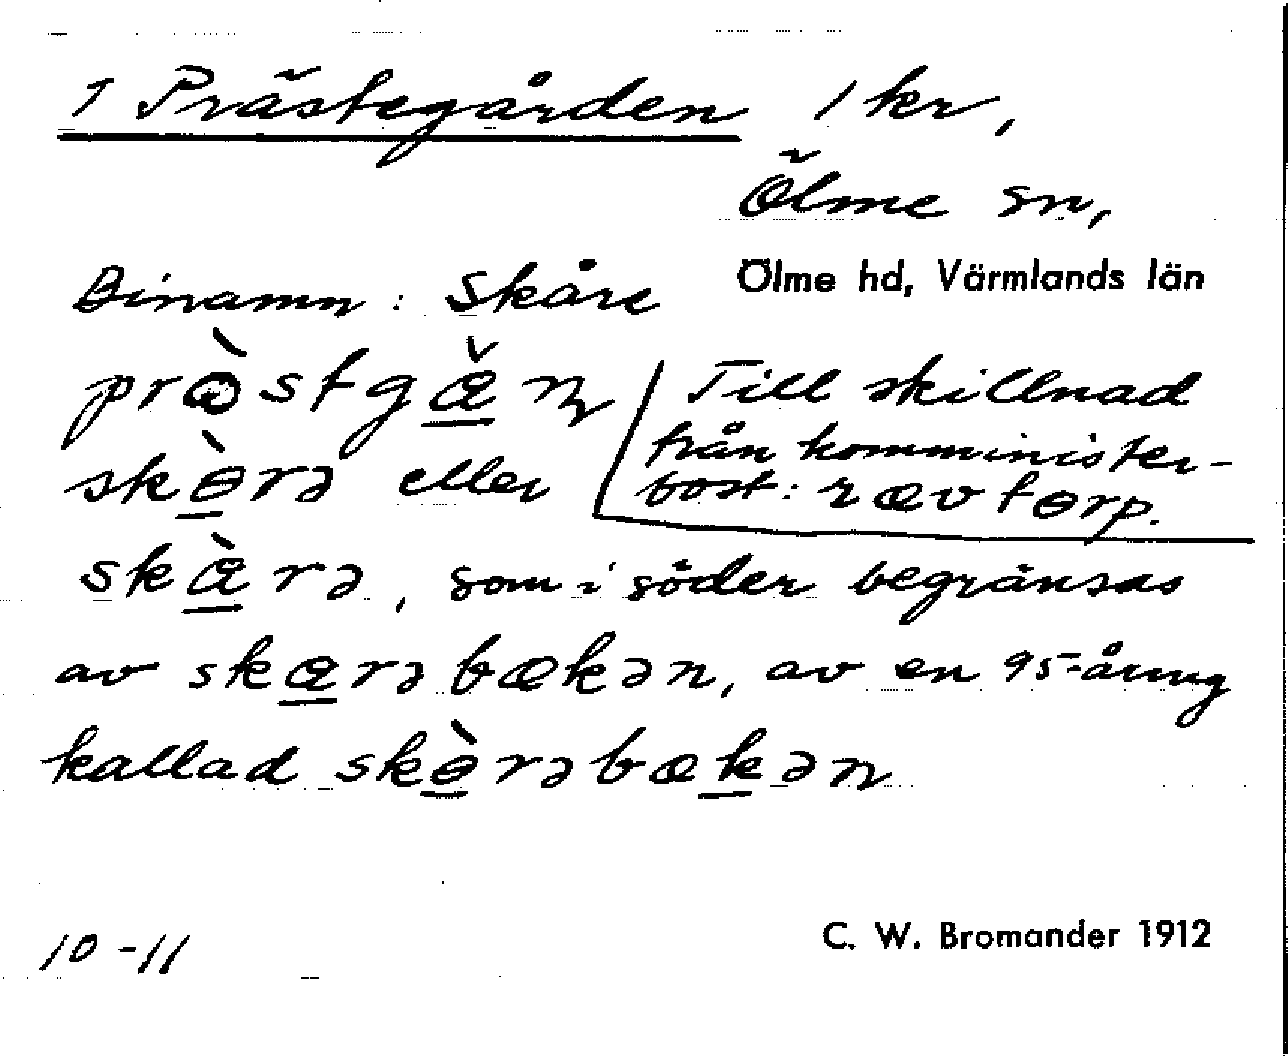 1 Prästegården 1 kr,
Ölme sn,
Ölme hd, Värmlands län
Binamn: Skåre
prὰstgæ̠̌ɳ
skɵ̠̀rə eller
Till skillnad
från komminister-
bost: rævtɵrp.
skæ̠̀rə, som i söder begränsas
av skæ̠rəbækən, av en 95-åring
kallad skɵ̠̀rəbæk̠ən
10-11
C. W. Bromander 1912